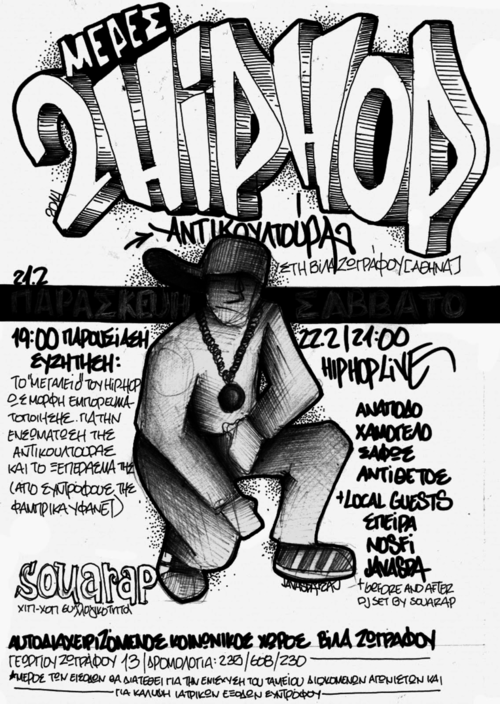 ΜΕΡΕΣ
2HiPHOP
2014
ΑΝΤΙΚΟΥΛΤΟύΡΑς
ΣΤΗ ΒίΛΑ ΖΩΓΡΑΦΟΥ [ΑΘΗΝΑ]
21.2
ΠΑΡΑΣΚΕΥΗ ΣΑΒΒΑΤΟ
19:00 ΠΑΡΟΥΣίΑΣΗ
ΣΥΖΗΤΗΣΗ:
ΤΟ "ΜΕΓΑΛΕίΟ" ΤΟΥ HIPHOP
ΩΣ ΜΟΡΦΗ ΕΜΠΟΡΕΥΜΑ-
ΤΟΠΟΙΗΣΗΣ. ΓΙΑ ΤΗΝ
ΕΝΣΩΜΑΤΩΣΗ ΤΗΣ
ΑΝΤΙΚΟΥΛΤΟΥΡΑΣ
ΚΑΙ ΤΟ ΞΕΠΕΡΑΣΜΑ ΤΗΣ
(ΑΠΟ ΣΥΝΤΡΟΦΟΥΣ ΤΗΣ
ΦΑΜΠΡΙΚΑ ΥΦΑΝΕΤ)
22.2 | 21:00
HIPHOP LiVE
ΑΝΑΠΟΔΟ
ΧΑΜΟΓΕΛΟ
ΣΑΦΩΣ
ΑΝΤίΘΕΤΟΣ
+LOCAL GUESTS
ΣΠΕΙΡΑ
NOSFi
JAVASPA
+BEFORE AND AFTER
DJ SET BY SOUARAP
souarap
ΧΙΠ-ΧΟΠ ΣΥΛΛΟΓΙΚΟΤΗΤΑ
ΑΥΤΟΔΙΑΧΕΙΡΙΖΟΜΕΝΟΣ ΚΟΙΝΩΝΙΚΟΣ ΧΩΡΟΣ ΒΙΛΑ ΖΩΓΡΑΦΟΥ
ΓΕΩΡΓΙΟΥ ΖΩΓΡΑΦΟΥ 13 | ΔΡΟΜΟΛΟΓΙΑ: 230/608/230
*ΜΕΡΟΣ ΤΩΝ ΕΣΟΔΩΝ ΘΑ ΔΙΑΤΕΘΕΙ ΓΙΑ ΤΗΝ ΕΝΙΣΧΥΣΗ ΤΟΥ ΤΑΜΕΙΟΥ ΔΙΩΚΟΜΕΝΩΝ ΑΓΩΝΙΣΤΩΝ ΚΑΙ
ΓΙΑ ΚΑΛΥΨΗ ΙΑΤΡΙΚΩΝ ΕΞΟΔΩΝ ΣΥΝΤΡΟΦΟΥ